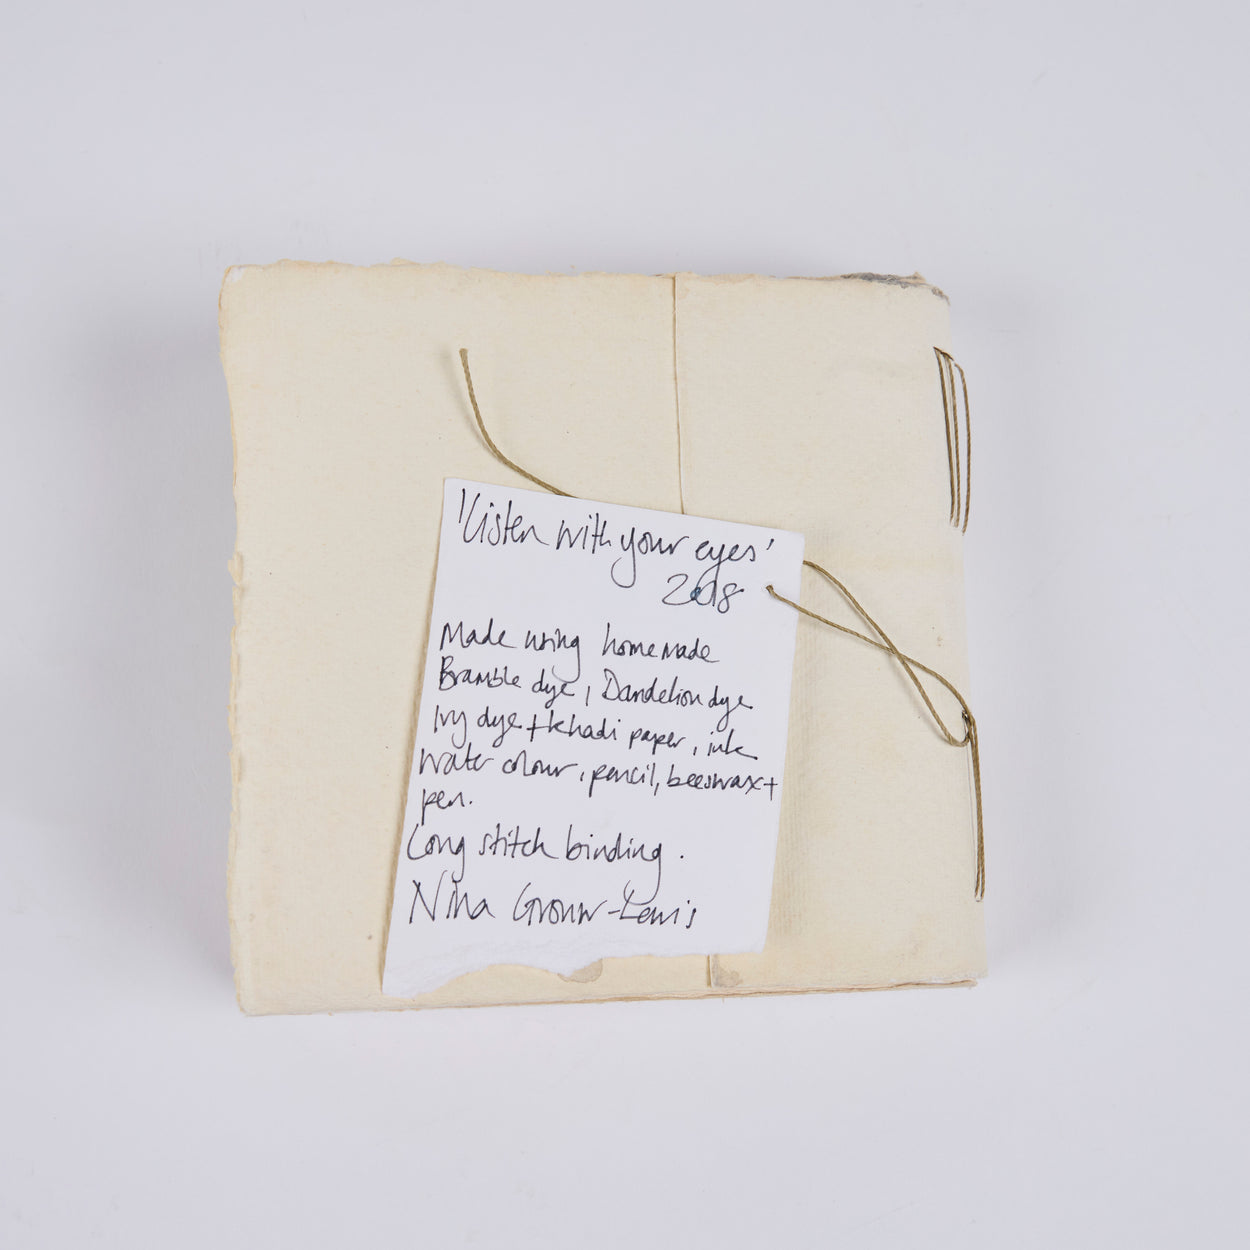 'Listen with your eyes'
2018
Made using homemade
Bramble dye, Dandelion dye
Ivy dye + khadi paper, ink
water colour, pencil, beeswax +
pen.
Long stitch binding.
Nina Gronw-Lewis